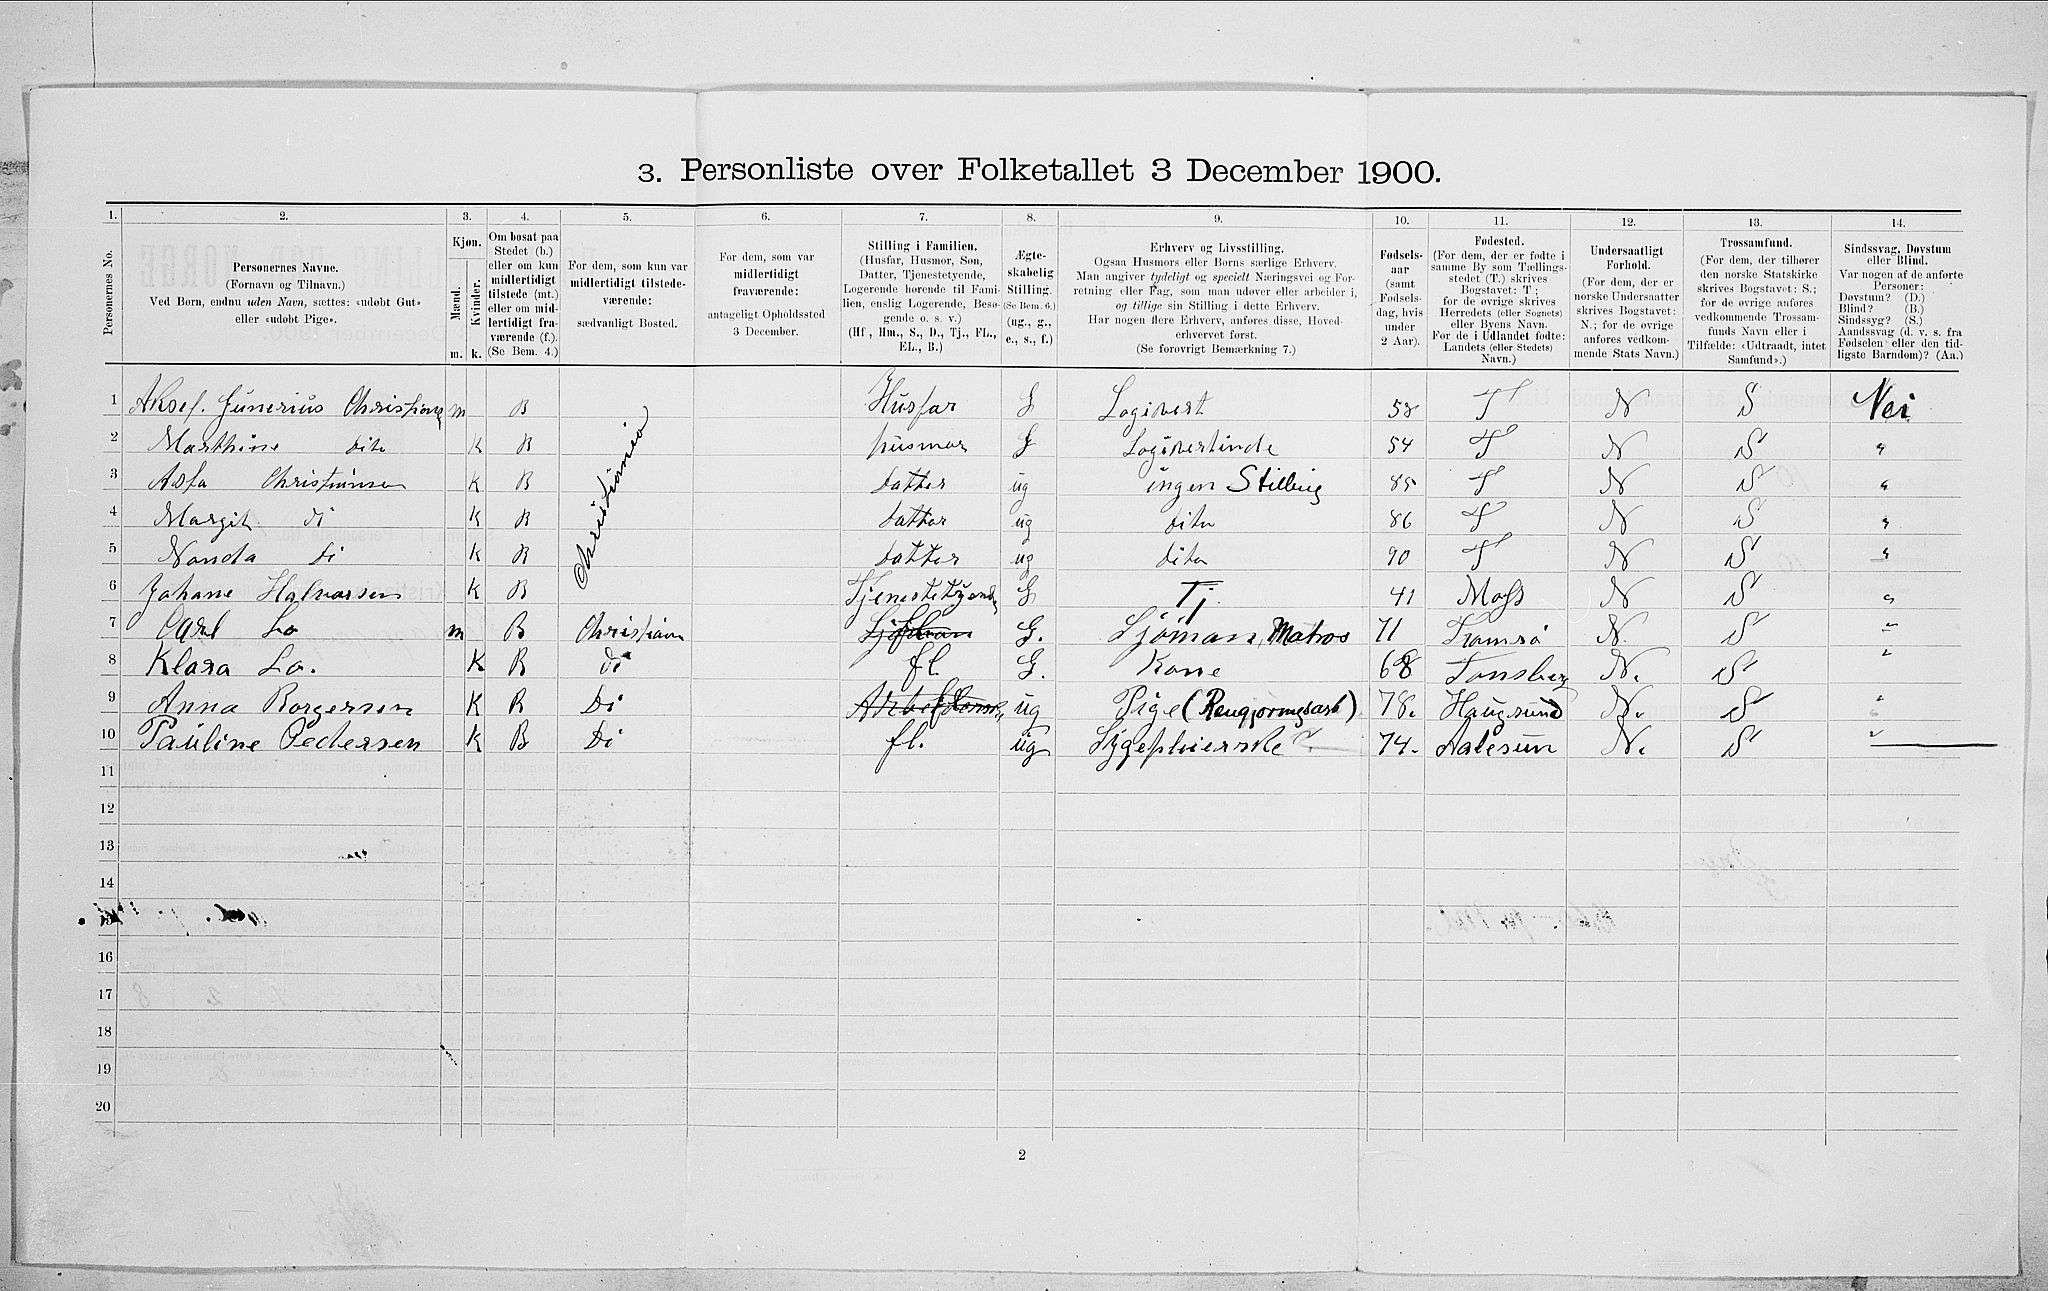 3. Personliste over Folketallet 3 December 1900.
1. 2. 3. 4. 5. 6. 7. 8. 9. 10. 11. 12. 13. 14.
Personernes No.
Personernes Navne.
(Fornavn og Tilnavn.)
Ved Børn, endnu uden Navn, sættes: «udøbt Gut»
eller «udøbt Pige».
Kjøn.
Mænd. Kvinder.
m. k.
Om bosat paa
Stedet (b.)
eller om kun
midlertidigt
tilstede (mt.)
eller om mid-
lertidigt fra-
værende (f.).
(Se Bem. 4.)
For dem, som kun var
midlertidigt tilstede-
værende:
sædvanligt Bosted.
For dem, som var
midlertidigt
fraværende:
antageligt Opholdssted
3 December.
Stilling i Familien.
(Husfar, Husmor, Søn,
Datter, Tjenestetyende,
Logerende hørende til Fami-
lien, enslig Logerende, Besø-
gende o. s. v.)
(Hf, Hm., S., D., Tj., FL.,
EL., B.)
Ægte-
skabelig
Stilling.
(Se Bem. 6.)
(ug., g.,
e., s., f.)
Erhverv og Livsstilling.
Ogsaa Husmors eller Børns særlige Erhverv.
Man angiver tydeligt og specielt Næringsvei og For-
retning eller Fag, som man udøver eller arbeider i,
og tillige sin Stilling i dette Erhverv.
Har nogen flere Erhverv, anføres disse, Hoved-
erhvervet først.
(Se forøvrigt Bemærkning 7.)
Fødsels-
aar
(samt
Fødsels-
dag, hvis
under
2 Aar).
Fødested.
(For dem, der er fødte i
samme By som Tællings-
stedet (T.) skrives
Bogstavet: T.;
for de øvrige skrives
Herredets (eller Sognets)
eller Byens Navn.
For de i Udlandet fødte:
Landets (eller Stedets)
Navn.)
Undersaatligt
Forhold.
(For dem, der er
norske Undersaatter
skrives Bogstavet:
N.; for de øvrige
anføres vedkom-
mende Stats Navn.)
Trossamfund.
(For dem, der tilhører
den norske Statskirke
skrives Bogstavet: S.;
for de øvrige anføres
vedkommende Trossam-
funds Navn eller i
Tilfælde: «Udtraadt, intet
Samfund».)
Sindssvag, Døvstum
eller Blind.
Var nogen af de anførte
Personer:
Døvstum? (D.)
Blind? (B.)
Sindssyg? (S.)
Aandssvag (d. v. s. fra
Fødselen eller den tid-
ligste Barndom)? (Aa.)
1 Aksel. Junerius Christians m B Husfar G Logivert 58 T N S Nei
2 Marthine dito K B husmor G Logivertinde 54 T N S "
3 Asta Christiansen K B datter ug ingen Stilling 85 T N S "
4 Margit di K B datter ug dito 86 T N S "
5 Nanda di K B datter ug dito 90 T N S "
Christiania
6 Johane Halvorsen K B Tjenestetyende G Tj. 41 Moss N S "
7 Carl Lo m B Christiania G. Sjöman, Matros 71 Tromsö N. S "
8 Klara Lo. K B di fl. G. Kone 68 Tonsberg N. S "
9 Anna Borgersen K B Di ug Pige (Rengjøringsarb) 78. Haugsund N. S "
10 Pauline Pedersen K B Di fl. ug Sygepleierske 74. Aalesun N. S "
11
12
13
14
15
16
17
18
19
20
2